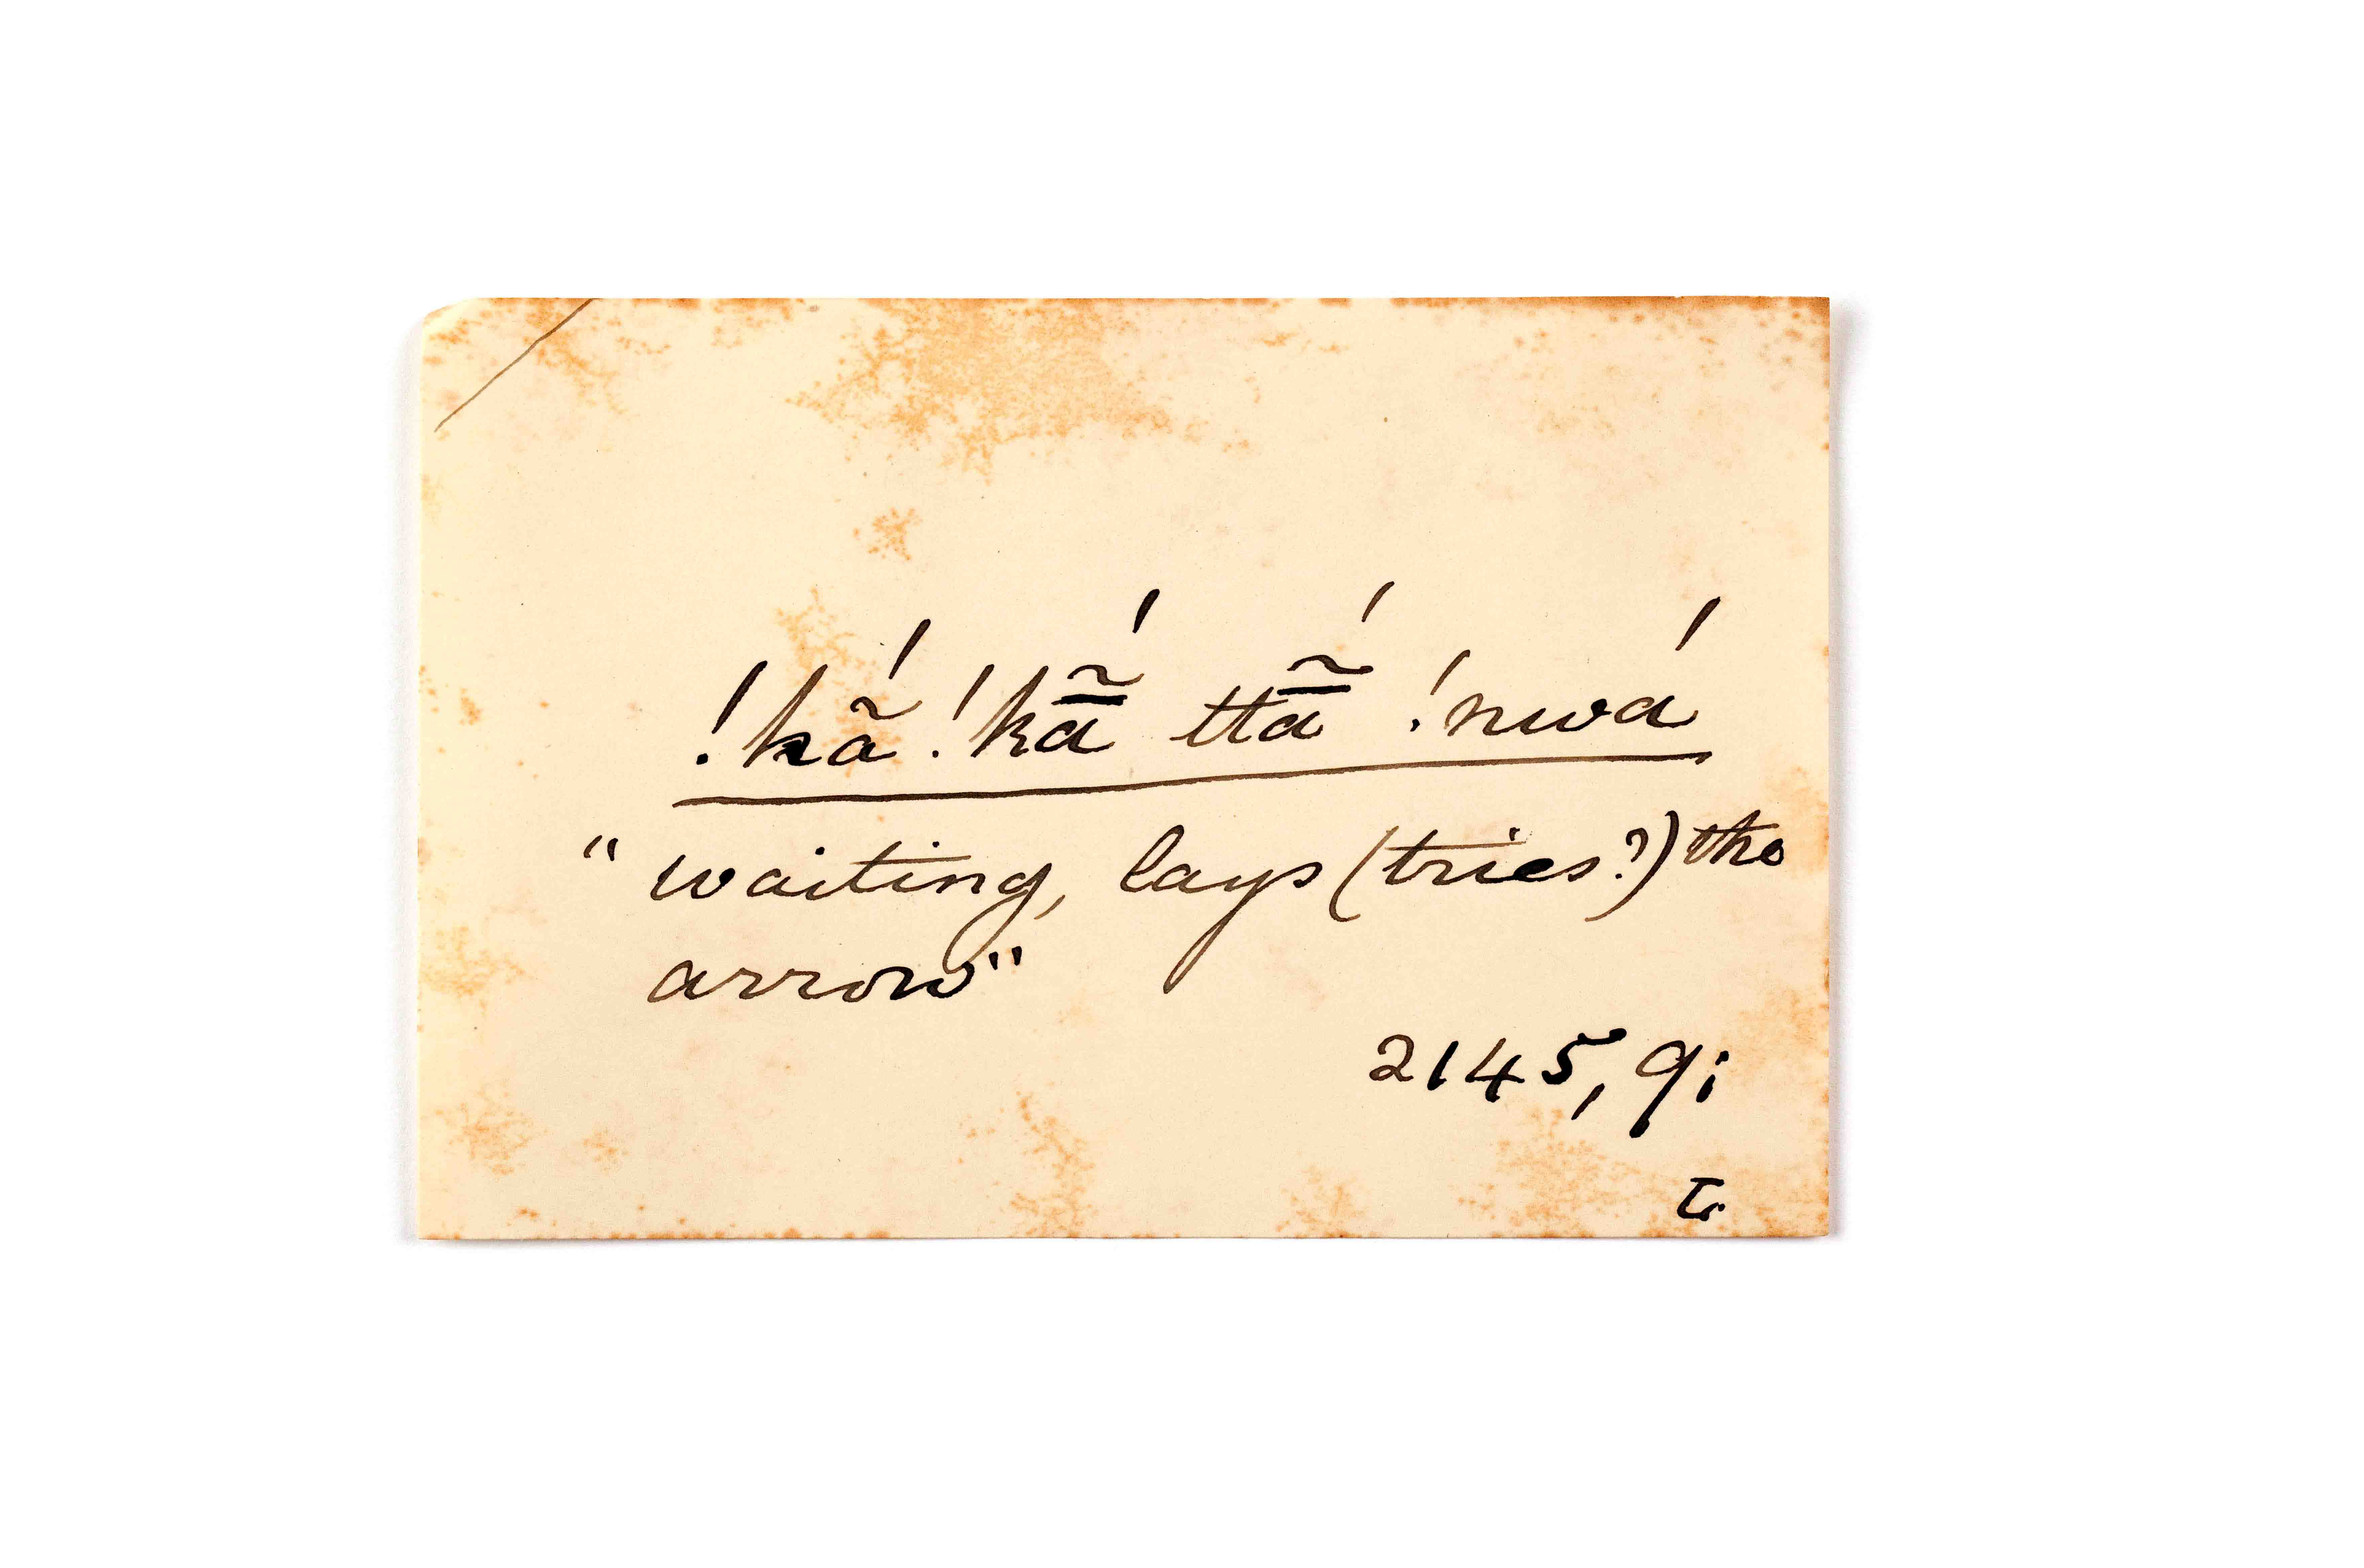 !kã́ !kã̄́ ttã̄́ !nwá
" waiting, lays (tries?) the
arrow"
2145, 9;